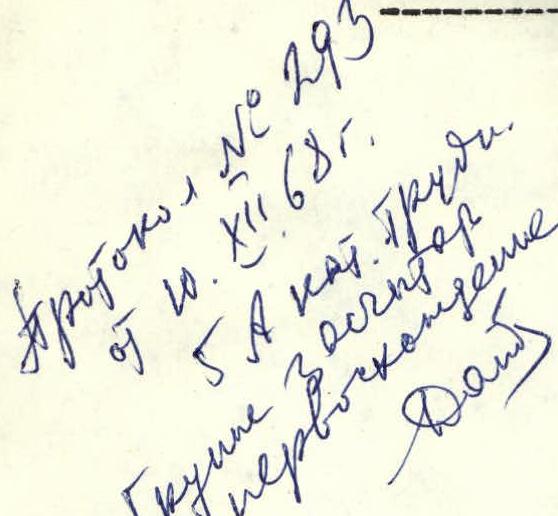 Протокол № 293
от 10. XII. 68 г.
5 А кат. трудн.
Группе засчитар
первосхождение